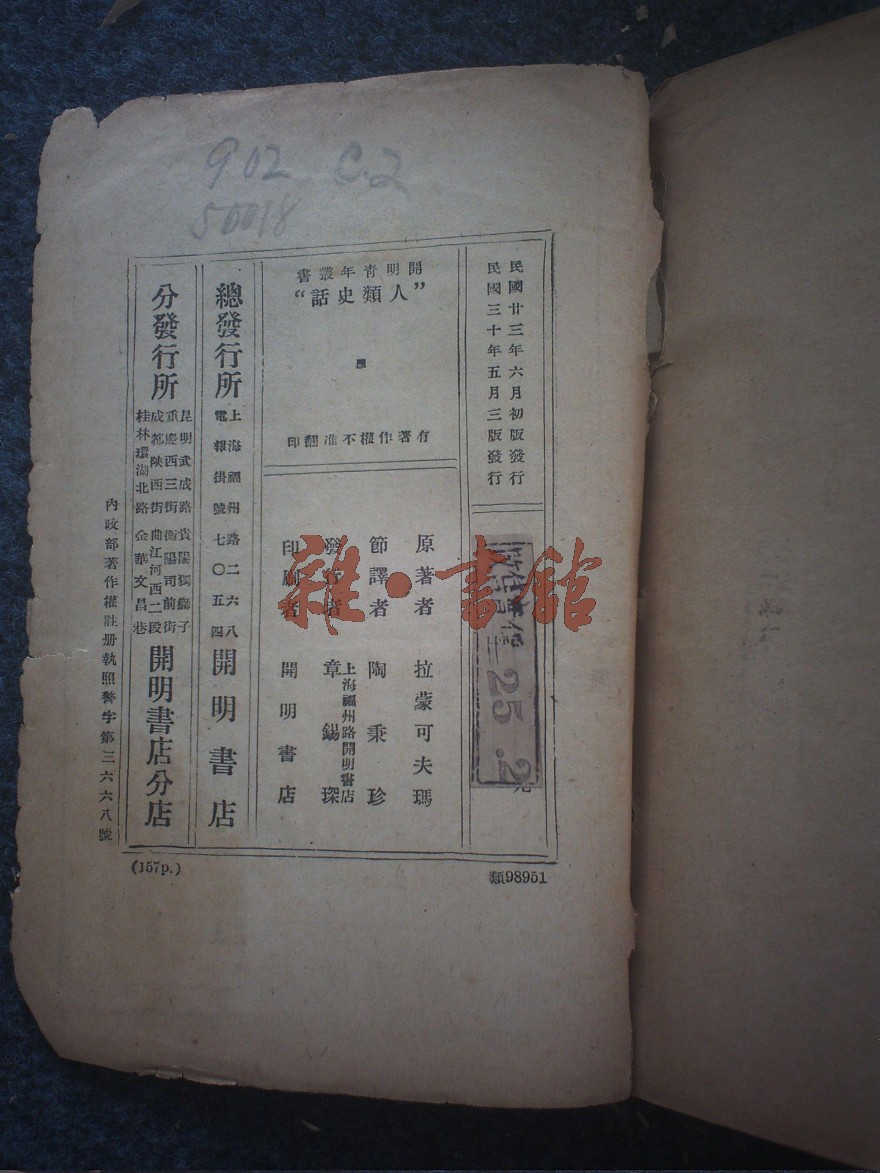 902 C.2
50018
民國廿三年六月初版發行
民國三十年五月三版發行
開明青年叢書
“人類史話”
有著作權不准翻印
原著者 拉蒙可夫瑪
節譯者 陶秉珍
發行者 章錫琛
上海福州路開明書店
印刷者 開明書店
25.2
元
總發行所
上海福州路二六八
電報掛號七〇五四
開明書店
分發行所
昆明武成路 貴陽獨獅子
重慶西三街 衡陽司前街
成都陝西街 曲江河西二段
桂林環湖北路 金華文昌巷
開明書店分店
內政部著作權註册執照警字第三六六八號
(157p.)
類98951
雜·書館